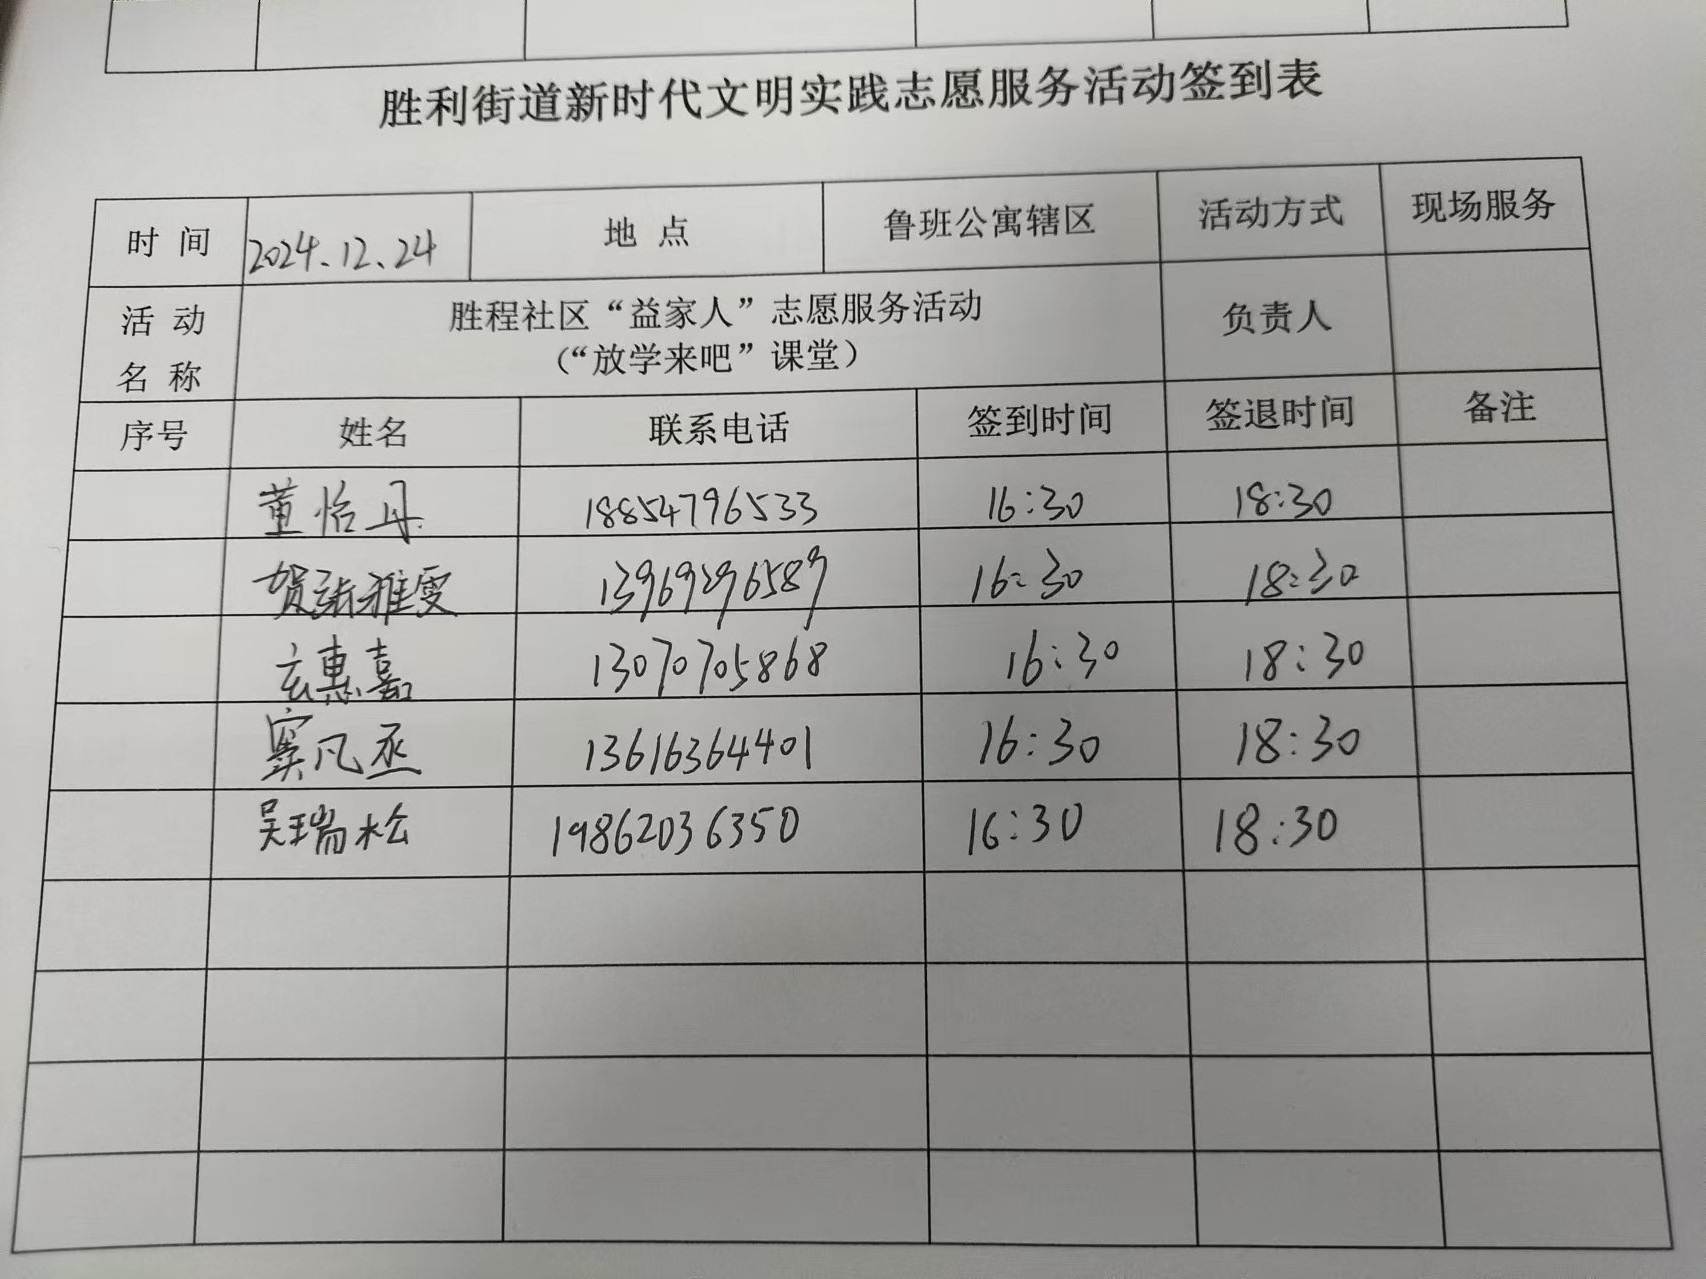 胜利街道新时代文明实践志愿服务活动签到表
时 间 2024.12.24 地 点 鲁班公寓辖区 活动方式 现场服务
活 动 名 称 胜程社区“益家人”志愿服务活动 负责人
（“放学来吧”课堂）
序号 姓名 联系电话 签到时间 签退时间 备注
董怡丹 18854796533 16:30 18:30
贺新雅雯 13969296589 16:30 18:30
玄惠嘉 13070705868 16:30 18:30
窦凡丞 13616364401 16:30 18:30
吴瑞松 19862036350 16:30 18:30